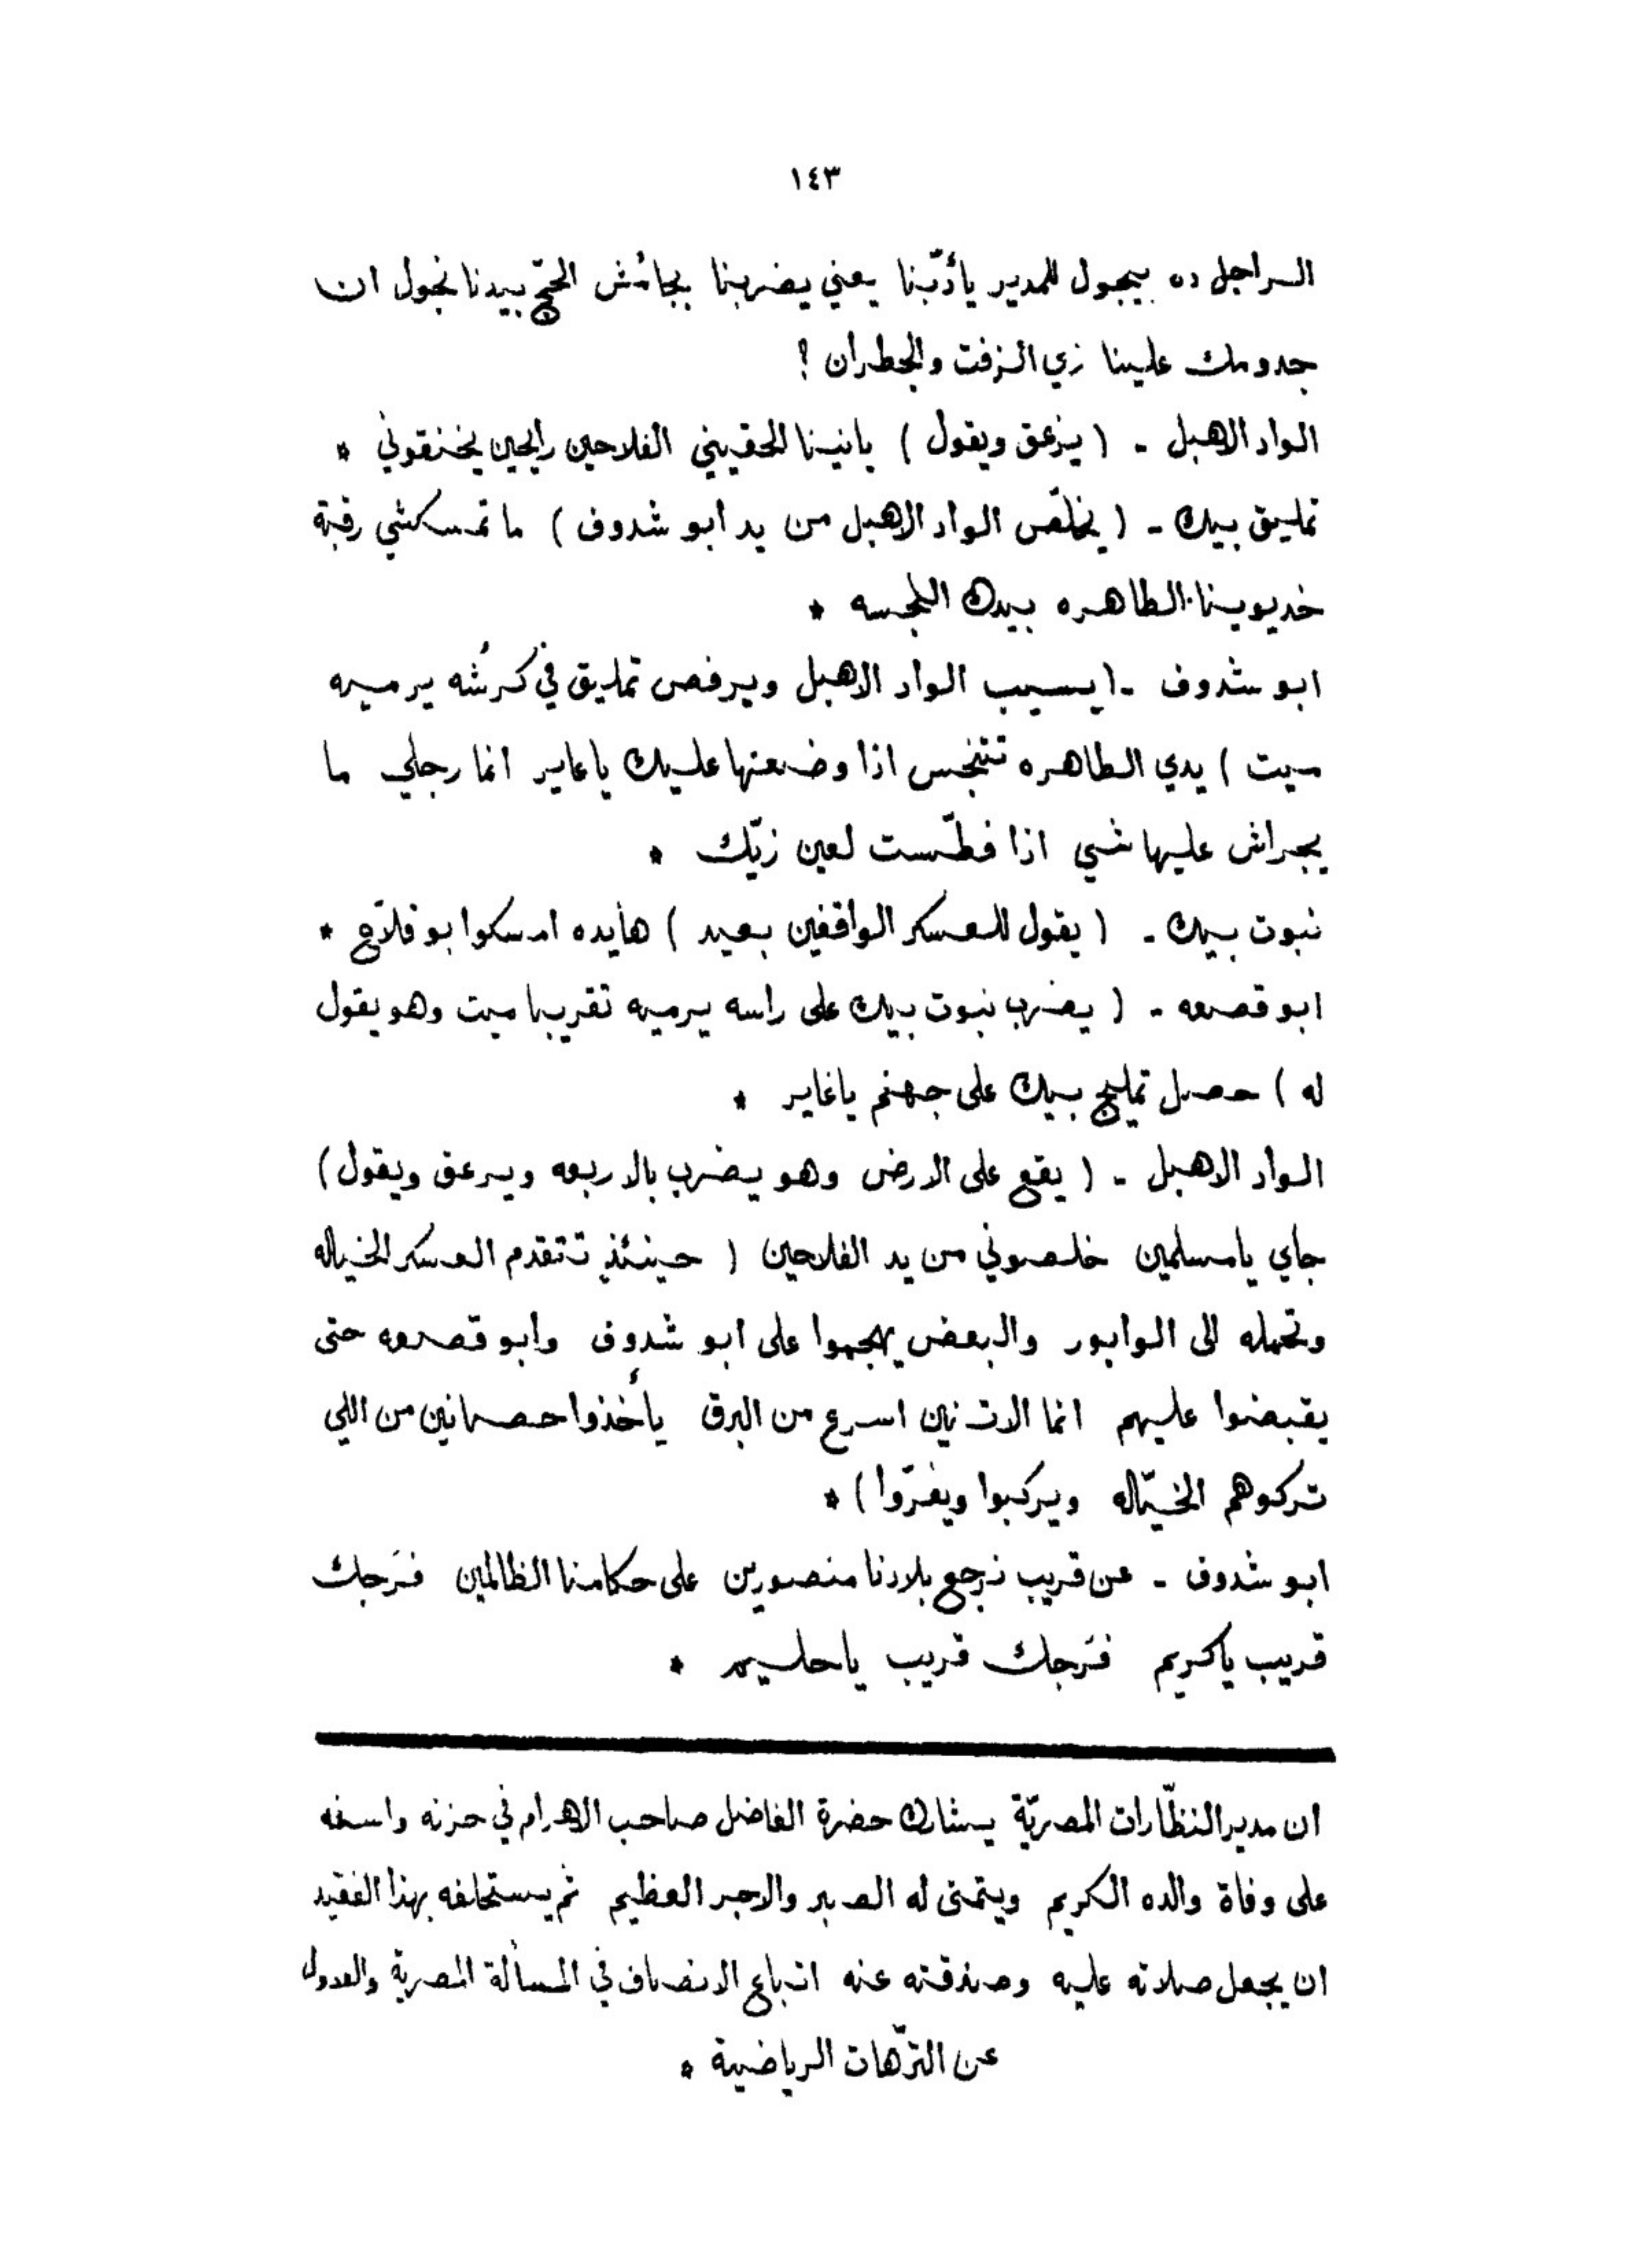 ١٤٣
الراجل ده بيجول للمدير يأدّبنا يعني يضربنا بجائش الحجّ بيدنا نجول ان
جدومك علينا زي الزفت والجطران ؟
الواد الاهبل - ( يزعق ويقول ) يانينا الحقيني الفلاحين رايحين يخنقوني *
تمليق بيك - ( يخلّص الواد الاهبل من يد ابو شدوف ) ما تمسكشي رقبة
خديوينا الطاهره بيدك النجسه *
ابو شدوف - ( يسيب الواد الاهبل ويرفص تمليق في كرشه يرميه
ميت ) يدي الطاهره تتنجس اذا وضعتها عليك ياعاير انما رجلي ما
يجراش عليها شي اذا فطّست لعين زيّك *
نبوت بيك - ( يقول للعسكر الواقفين بعيد ) هايده امسكوا بو فلاّح *
ابو قصعه - ( يضرب نبوت بيك على راسه يرميه تقريبا ميت وهو يقول
له ) حصل تمليج بيك على جهنم ياغاير *
الواد الاهبل - ( يقع على الارض وهو يضرب بالاربعه ويزعق ويقول )
جاي يامسلمين خلصوني من يد الفلاحين ( حينئذٍ تتقدم العسكر الخياله
وتحمله الى الوابور والبعض يهجموا على ابو شدوف وابو قصعه حتى
يقبضوا عليهم انما الاتنين اسرع من البرق يأخذوا حصانين من اللي
تركوهم الخيّاله ويركبوا ويفرّوا ) *
ابو شدوف - عن قريب نرجع بلادنا منصورين على حكامنا الظالمين فَرَجك
قريب ياكريم فَرَجك قريب ياحليم *
ان مدير النظّارات المصريّة يشارك حضرة الفاضل صاحب الاهرام في حزنه واسفه
على وفاة والده الكريم ويتمنى له الصبر والاجر العظيم ثم يستحلفه بهذا الفقيد
ان يجعل صلاته عليه وصدقته عنه اتباع الانصاف في المسألة المصرية والعدول
عن الترّهات الرياضية *